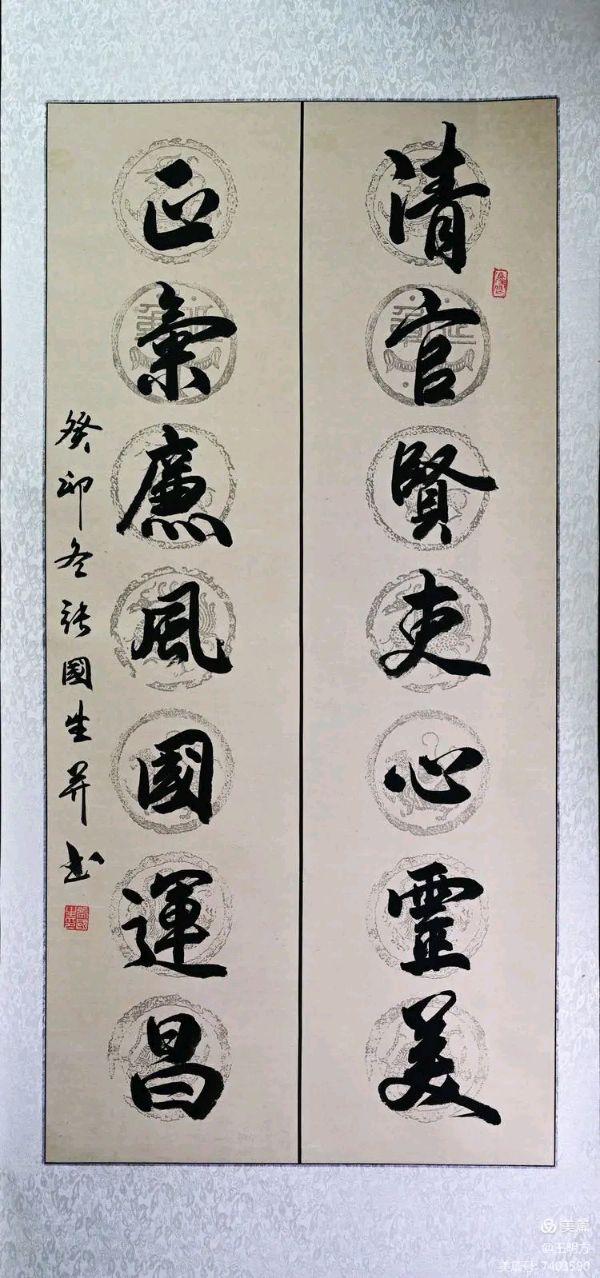 清官賢吏心靈美
正氣廉風國運昌
癸卯冬張國生并书
美篇
@王明方
美篇号:7403590